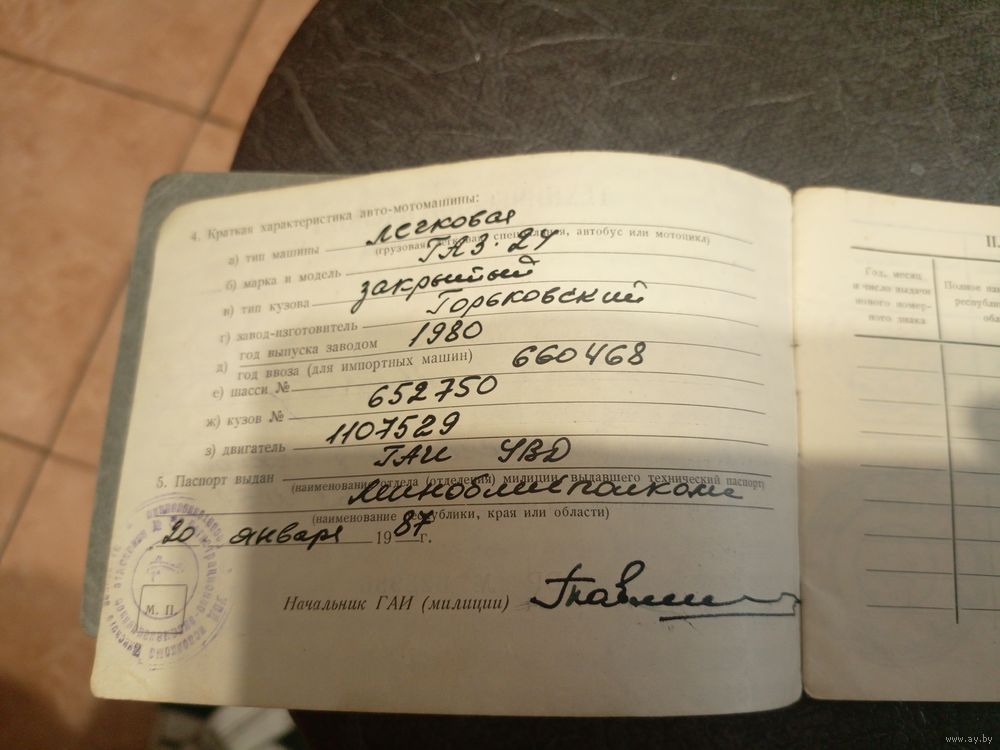 4. Краткая характеристика авто-мотомашины:
а) тип машины легковая
(грузовая, легковая, специальная, автобус или мотоцикл)
б) марка и модель ГАЗ-24
в) тип кузова закрытый
г) завод-изготовитель Горьковский
д) год выпуска заводом 1980
год ввоза (для импортных машин)
е) шасси № 660468
ж) кузов № 652750
з) двигатель 1107529
5. Паспорт выдан ГАИ УВД
(наименование отдела (отделения) милиции, выдавшего технический паспорт)
Миноблисполкома
(наименование республики, края или области)
20 января 1987 г.
М. П.
Начальник ГАИ (милиции)
Год, месяц
и число выдачи
нового номер-
ного знака
www.ay.by